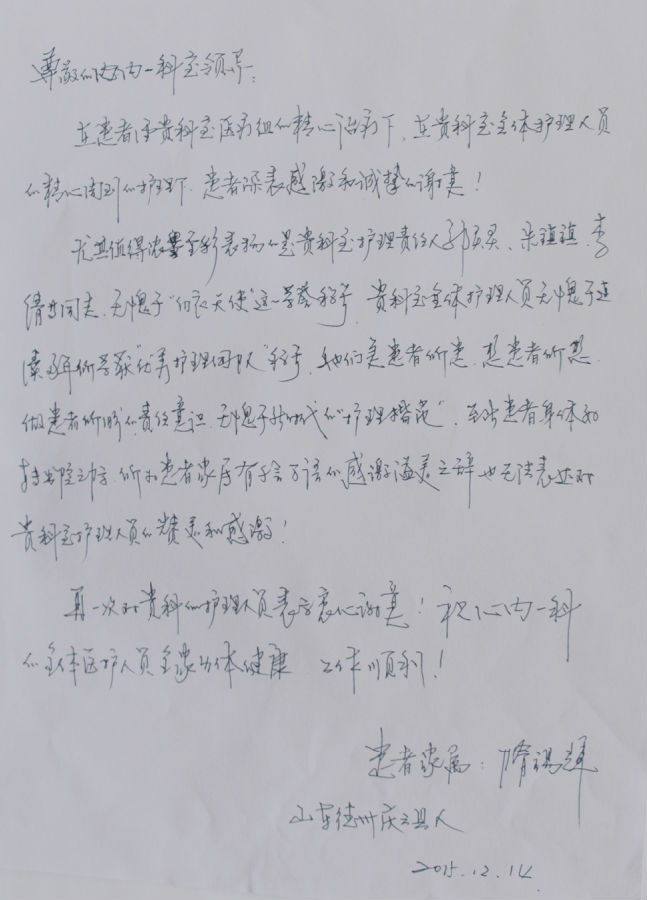 尊敬的心内一科室领导：
在患者在贵科室医疗组的精心治疗下，在贵科室全体护理人员
的精心周到的护理下，患者深表感激和诚挚的谢意！
尤其值得浓墨重彩表扬的是贵科室护理责任人郭 、 、李
倩 同志，无愧于“白衣天使”这一荣誉称号，贵科室全体护理人员无愧于连
续多年所荣获“优秀护理团队”称号，她们 患者所患，想患者所想，
做患者所 的责任意识，无愧于新时代的“护理楷范”，至此患者身体 和
将出院之 ，所 患者家属有千言万语的感激溢美之辞也无法表达对
贵科室护理人员的赞美和感激！
再一次对贵科的护理人员表示衷心谢意！祝心内一科
的全体医护人员全家身体健康 工作顺利！
患者家属：
山东德州庆云县人
2015.12.14